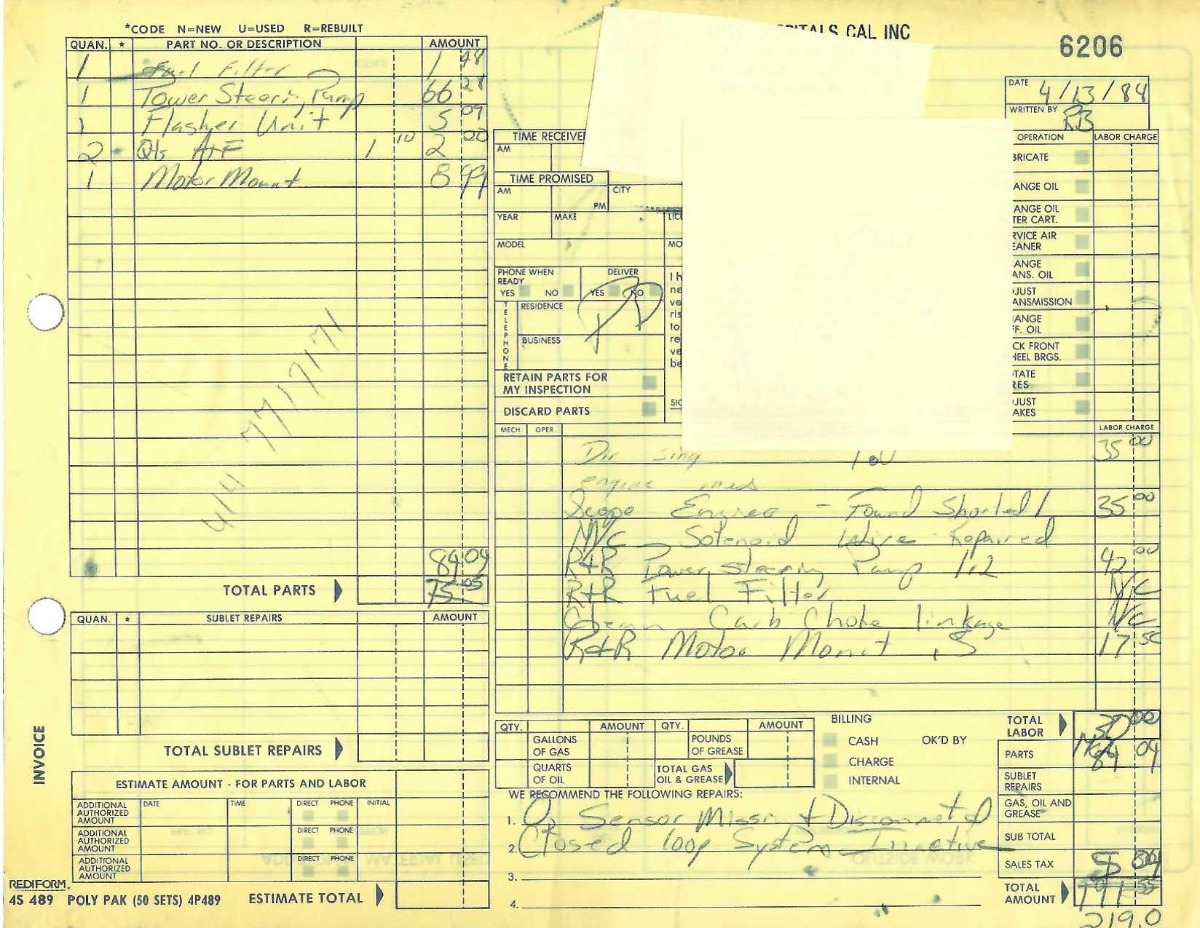 *CODE N=NEW U=USED R=REBUILT
QUAN. * PART NO. OR DESCRIPTION AMOUNT
1 Fuel Filter 1 49
1 Power Steering Pump 66 28
1 Flasher Unit 5 09
2 Qts ATF 1 10 2 00
1 Motor Mount 8 99
414 7717171
84 09
TOTAL PARTS 75 05
QUAN. * SUBLET REPAIRS AMOUNT
TOTAL SUBLET REPAIRS
ESTIMATE AMOUNT - FOR PARTS AND LABOR
ADDITIONAL AUTHORIZED AMOUNT DATE TIME DIRECT PHONE INITIAL
ADDITIONAL AUTHORIZED AMOUNT DIRECT PHONE
ADDITIONAL AUTHORIZED AMOUNT DIRECT PHONE
ESTIMATE TOTAL
INVOICE
REDIFORM.
4S 489 POLY PAK (50 SETS) 4P489
PITALS CAL INC
6206
DATE 4/13/84
WRITTEN BY RB
TIME RECEIVED
AM
TIME PROMISED
AM PM
CITY
YEAR MAKE LIC
MODEL MO
PHONE WHEN READY DELIVER
YES NO YES NO
TELEPHONE
RESIDENCE
BUSINESS
I h
ne
ve
ris
to
re
ve
be
RETAIN PARTS FOR
MY INSPECTION
DISCARD PARTS
SIG
OPERATION LABOR CHARGE
BRICATE
ANGE OIL
ANGE OIL
TER CART.
RVICE AIR
EANER
ANGE
ANS. OIL
JUST
ANSMISSION
ANGE
FF. OIL
CK FRONT
HEEL BRGS.
TATE
RES
JUST
AKES
MECH OPER LABOR CHARGE
35 00
engine
Scope Engine - Found Shorted 35 00
M/C Solenoid Wire Repaired
R+R Power Steering Pump 1.2 42 00
R+R Fuel Filter N/C
Clean Carb Choke linkage N/C
R+R Motor Mount .5 17 50
QTY. AMOUNT QTY. AMOUNT
GALLONS OF GAS
POUNDS OF GREASE
QUARTS OF OIL
TOTAL GAS OIL & GREASE
BILLING
CASH OK'D BY
CHARGE
INTERNAL
WE RECOMMEND THE FOLLOWING REPAIRS:
1. O2 Sensor Missing + Disconnected
2. Closed loop System Inactive
3.
4.
TOTAL LABOR 00
PARTS 84 09
SUBLET REPAIRS
GAS, OIL AND GREASE
SUB TOTAL
SALES TAX
TOTAL AMOUNT 191 55
219.0